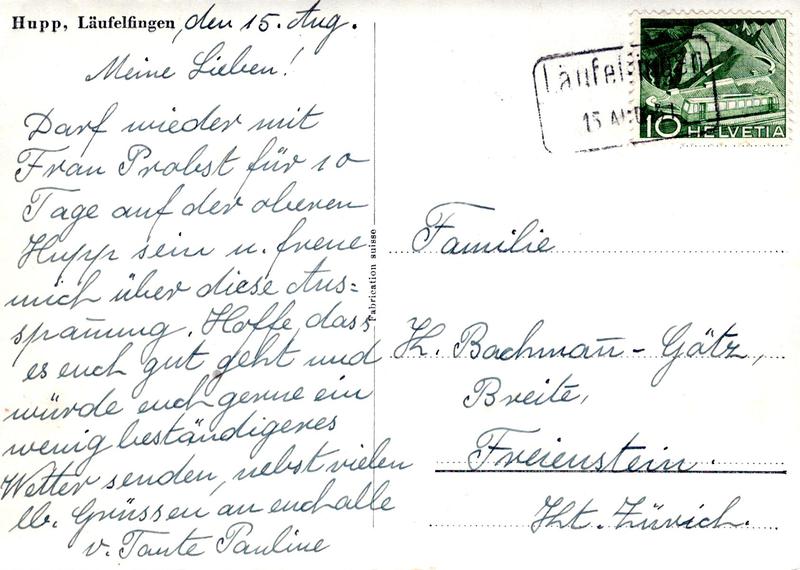 Hupp, Läufelfingen, den 15. Aug.
Meine Lieben!
Darf wieder mit
Frau Probst für 10
Tage auf der oberen
Hupp sein u. freue
mich über diese Aus=
span̄ung. Hoffe, dass
es euch gut geht und
würde euch gerne ein
wenig beständigeres
Wetter senden, nebst vielen
lb. Grüssen an euch alle
v. Tante Pauline
Fabrication suisse
15 AUG
10 HELVETIA
Familie
H. Bachman̄-Götz,
Breite,
Freienstein.
Kt. Zürich.